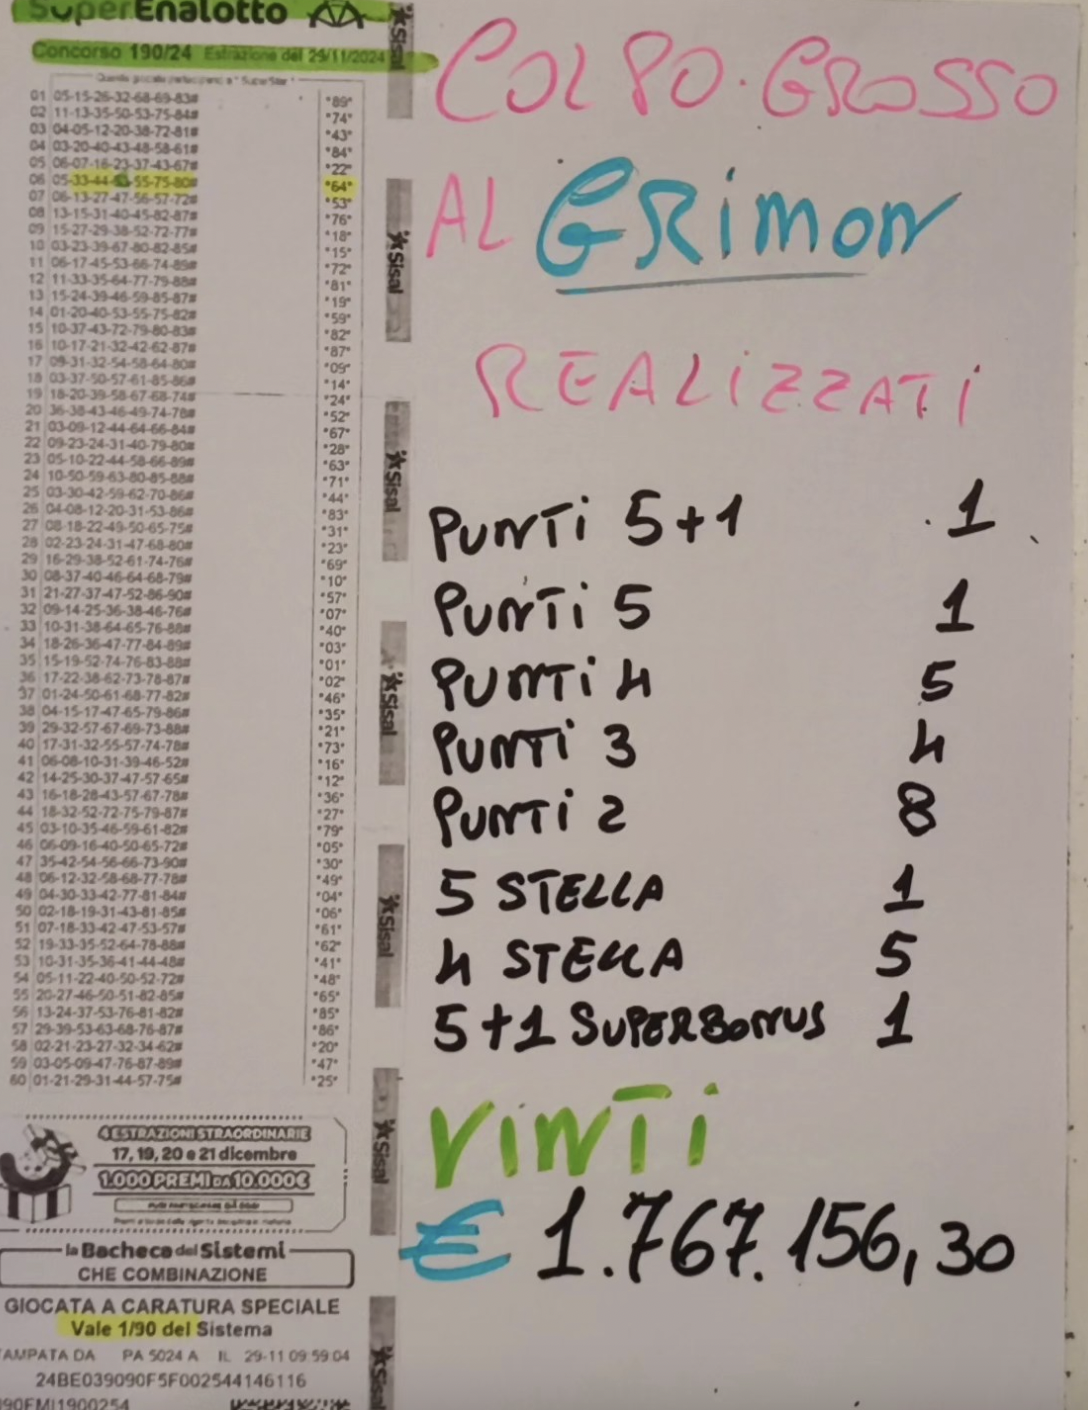 SuperEnalotto
Concorso 190/24 Estrazione del 29/11/2024
01 05-15-26-32-68-69-83# *89*
02 11-13-35-50-53-75-84# *74*
03 04-05-12-20-38-72-81# *43*
04 03-20-40-43-48-58-61# *84*
05 06-07-16-23-37-43-67# *22*
06 05-33-44- -55-75-80# *64*
07 06-13-27-47-56-57-72# *53*
08 13-15-31-40-45-82-87# *76*
09 15-27-29-38-52-72-77# *18*
10 03-23-39-67-80-82-85# *15*
11 06-17-45-53-66-74-89# *72*
12 11-33-35-64-77-79-88# *81*
13 15-24-39-46-59-85-87# *19*
14 01-20-40-53-55-75-82# *59*
15 10-37-43-72-79-80-83# *82*
16 10-17-21-32-42-62-87# *87*
17 09-31-32-54-58-64-80# *09*
18 03-37-50-57-61-85-86# *14*
19 18-20-39-58-67-68-74# *24*
20 36-38-43-46-49-74-78# *52*
21 03-09-12-44-64-66-84# *67*
22 09-23-24-31-40-79-80# *28*
23 05-10-22-44-58-66-89# *63*
24 10-50-59-63-80-85-88# *71*
25 03-30-42-59-62-70-86# *44*
26 04-08-12-20-31-53-86# *83*
27 08-18-22-49-50-65-75# *31*
28 02-23-24-31-47-68-80# *23*
29 16-29-38-52-61-74-76# *69*
30 08-37-40-46-64-68-79# *10*
31 21-27-37-47-52-86-90# *57*
32 09-14-25-36-38-46-76# *07*
33 10-31-38-64-65-76-88# *40*
34 18-26-36-47-77-84-89# *03*
35 15-19-52-74-76-83-88# *01*
36 17-22-38-62-73-78-87# *02*
37 01-24-50-61-68-77-82# *46*
38 04-15-17-47-65-79-86# *35*
39 29-32-57-67-69-73-88# *21*
40 17-31-32-55-57-74-78# *73*
41 06-08-10-31-39-46-52# *16*
42 14-25-30-37-47-57-65# *12*
43 16-18-28-43-57-67-78# *36*
44 18-32-52-72-75-79-87# *27*
45 03-10-35-46-59-61-82# *79*
46 06-09-16-40-50-65-72# *05*
47 35-42-54-56-66-73-90# *30*
48 06-12-32-58-68-77-78# *49*
49 04-30-33-42-77-81-84# *04*
50 02-18-19-31-43-81-85# *06*
51 07-18-33-42-47-53-57# *61*
52 19-33-35-52-64-78-88# *62*
53 10-31-35-36-41-44-48# *41*
54 05-11-22-40-50-52-72# *48*
55 20-27-46-50-51-82-85# *65*
56 13-24-37-53-76-81-82# *85*
57 29-39-53-63-68-76-87# *86*
58 02-21-23-27-32-34-62# *20*
59 03-05-09-47-76-87-89# *47*
60 01-21-29-31-44-57-75# *25*
4 ESTRAZIONI STRAORDINARIE
17, 19, 20 e 21 dicembre
1.000 PREMI DA 10.000€
la Bacheca dei Sistemi
CHE COMBINAZIONE
GIOCATA A CARATURA SPECIALE
Vale 1/90 del Sistema
TAMPATA DA PA 5024 A IL 29-11 09:59:04
24BE039090F5F002544146116
Sisal
Sisal
Sisal
Sisal
Sisal
Sisal
Sisal
COLPO GROSSO
AL GRIMON
REALIZZATI
PUNTI 5+1 1
PUNTI 5 1
PUNTI 4 5
PUNTI 3 4
PUNTI 2 8
5 STELLA 1
4 STELLA 5
5+1 SUPERBONUS 1
VINTI
€ 1.767.156,30